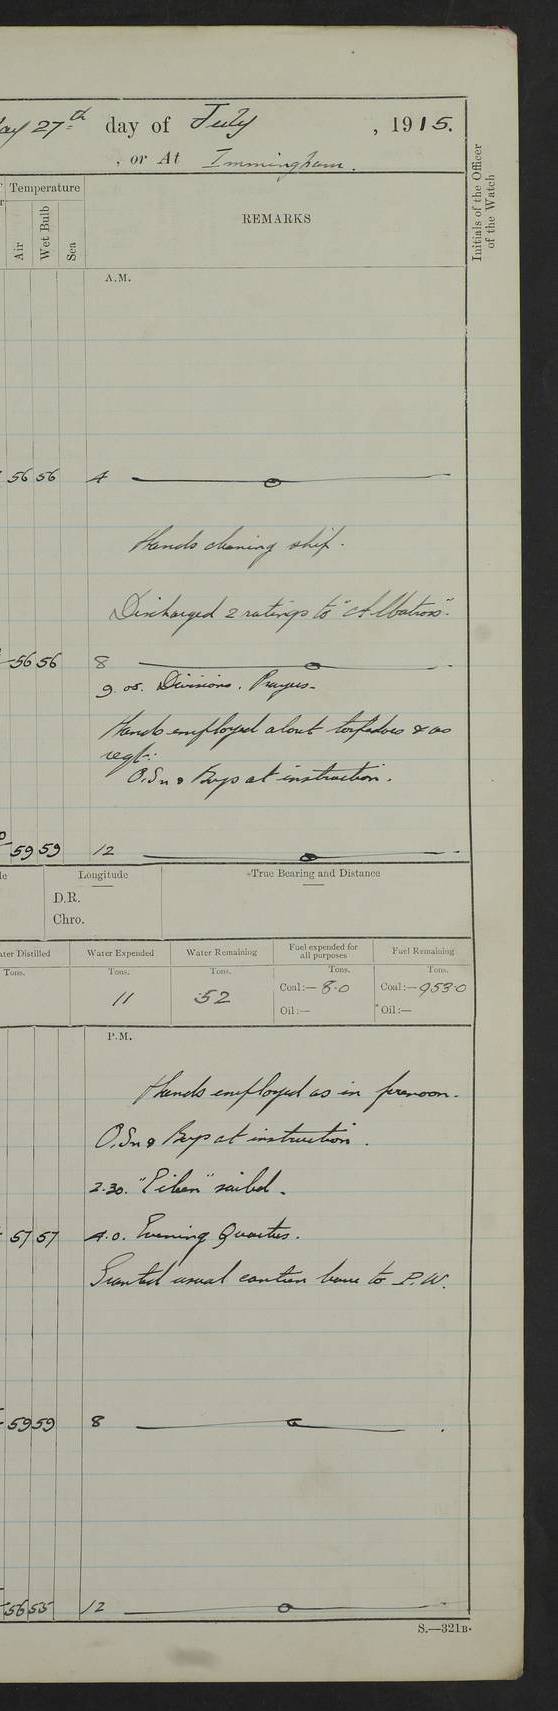 ay 27th day of July , 1915.
, or At Immingham.
Temperature
Air
Wet Bulb
Sea
REMARKS
Initials of the Officer
of the Watch
A.M.
56 56 4
Hands cleaning ship.
Discharged 2 ratings to "Albatross".
56 56 8
9.05. Divisions. Prayers.
Hands employed about torpedoes & as
reqd.
O.Sn & Boys at instruction.
59 59 12
Longitude
True Bearing and Distance
D.R.
Chro.
ater Distilled
Water Expended
Water Remaining
Fuel expended for
all purposes
Fuel Remaining
Tons.
Tons.
Tons.
Tons.
Tons.
11
52
Coal:— 8.0
Coal:— 953.0
Oil:—
Oil:—
P.M.
Hands employed as in forenoon.
O.Sn & Boys at instruction.
2.30. sailed.
57 57 4.0. Evening Quarters.
Granted usual canteen leave to P.W.
59 59 8
56 55 12
S.—321B.